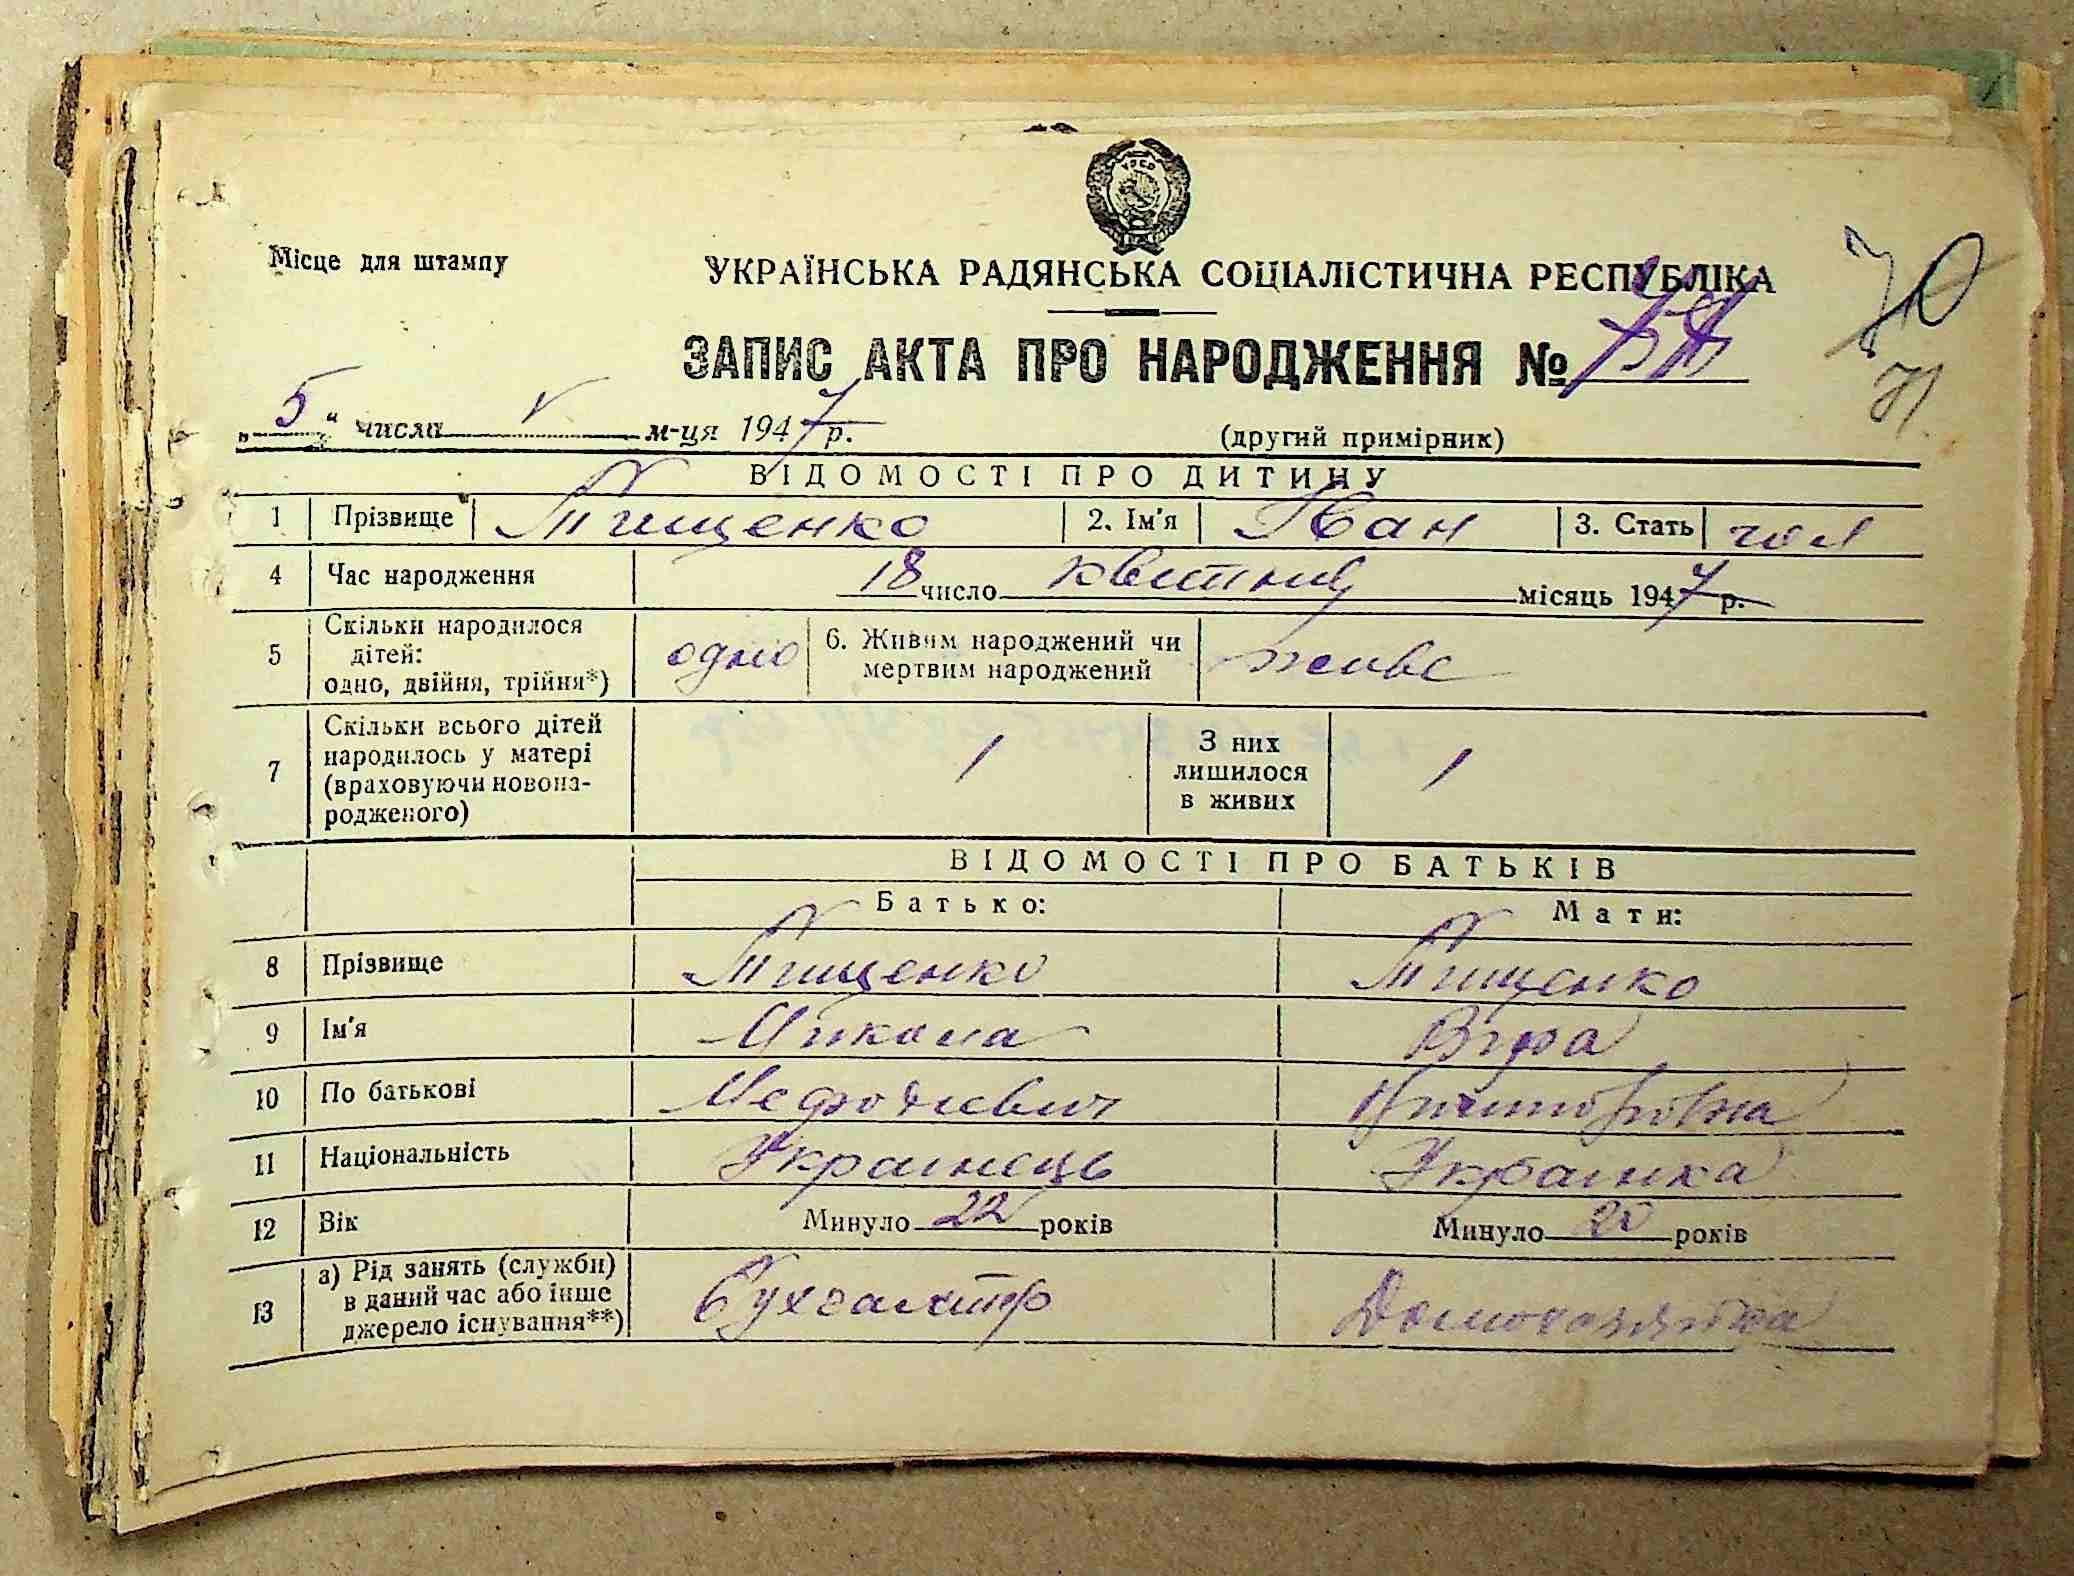 УРСР
Місце для штампу
УКРАЇНСЬКА РАДЯНСЬКА СОЦІАЛІСТИЧНА РЕСПУБЛІКА
70
ЗАПИС АКТА ПРО НАРОДЖЕННЯ №
71
„5“ числа V м-ця 1947 р.
(другий примірник)
ВІДОМОСТІ ПРО ДИТИНУ
1 Прізвище Тищенко 2. Ім'я Іван 3. Стать чол
4 Час народження 18 число квітня місяць 1947 р.
5 Скільки народилося дітей: одно, двійня, трійня*) одно 6. Живим народжений чи мертвим народжений живе
7 Скільки всього дітей народилось у матері (враховуючи новонародженого) 1 З них лишилося в живих 1
ВІДОМОСТІ ПРО БАТЬКІВ
Батько: Мати:
8 Прізвище Тищенко Тищенко
9 Ім'я Микола Віра
10 По батькові Мефодиевич
11 Національність Українець Українка
12 Вік Минуло 22 років Минуло 20 років
13 а) Рід занять (служби) в даний час або інше джерело існування**) Бухгалтер Домохазяйка